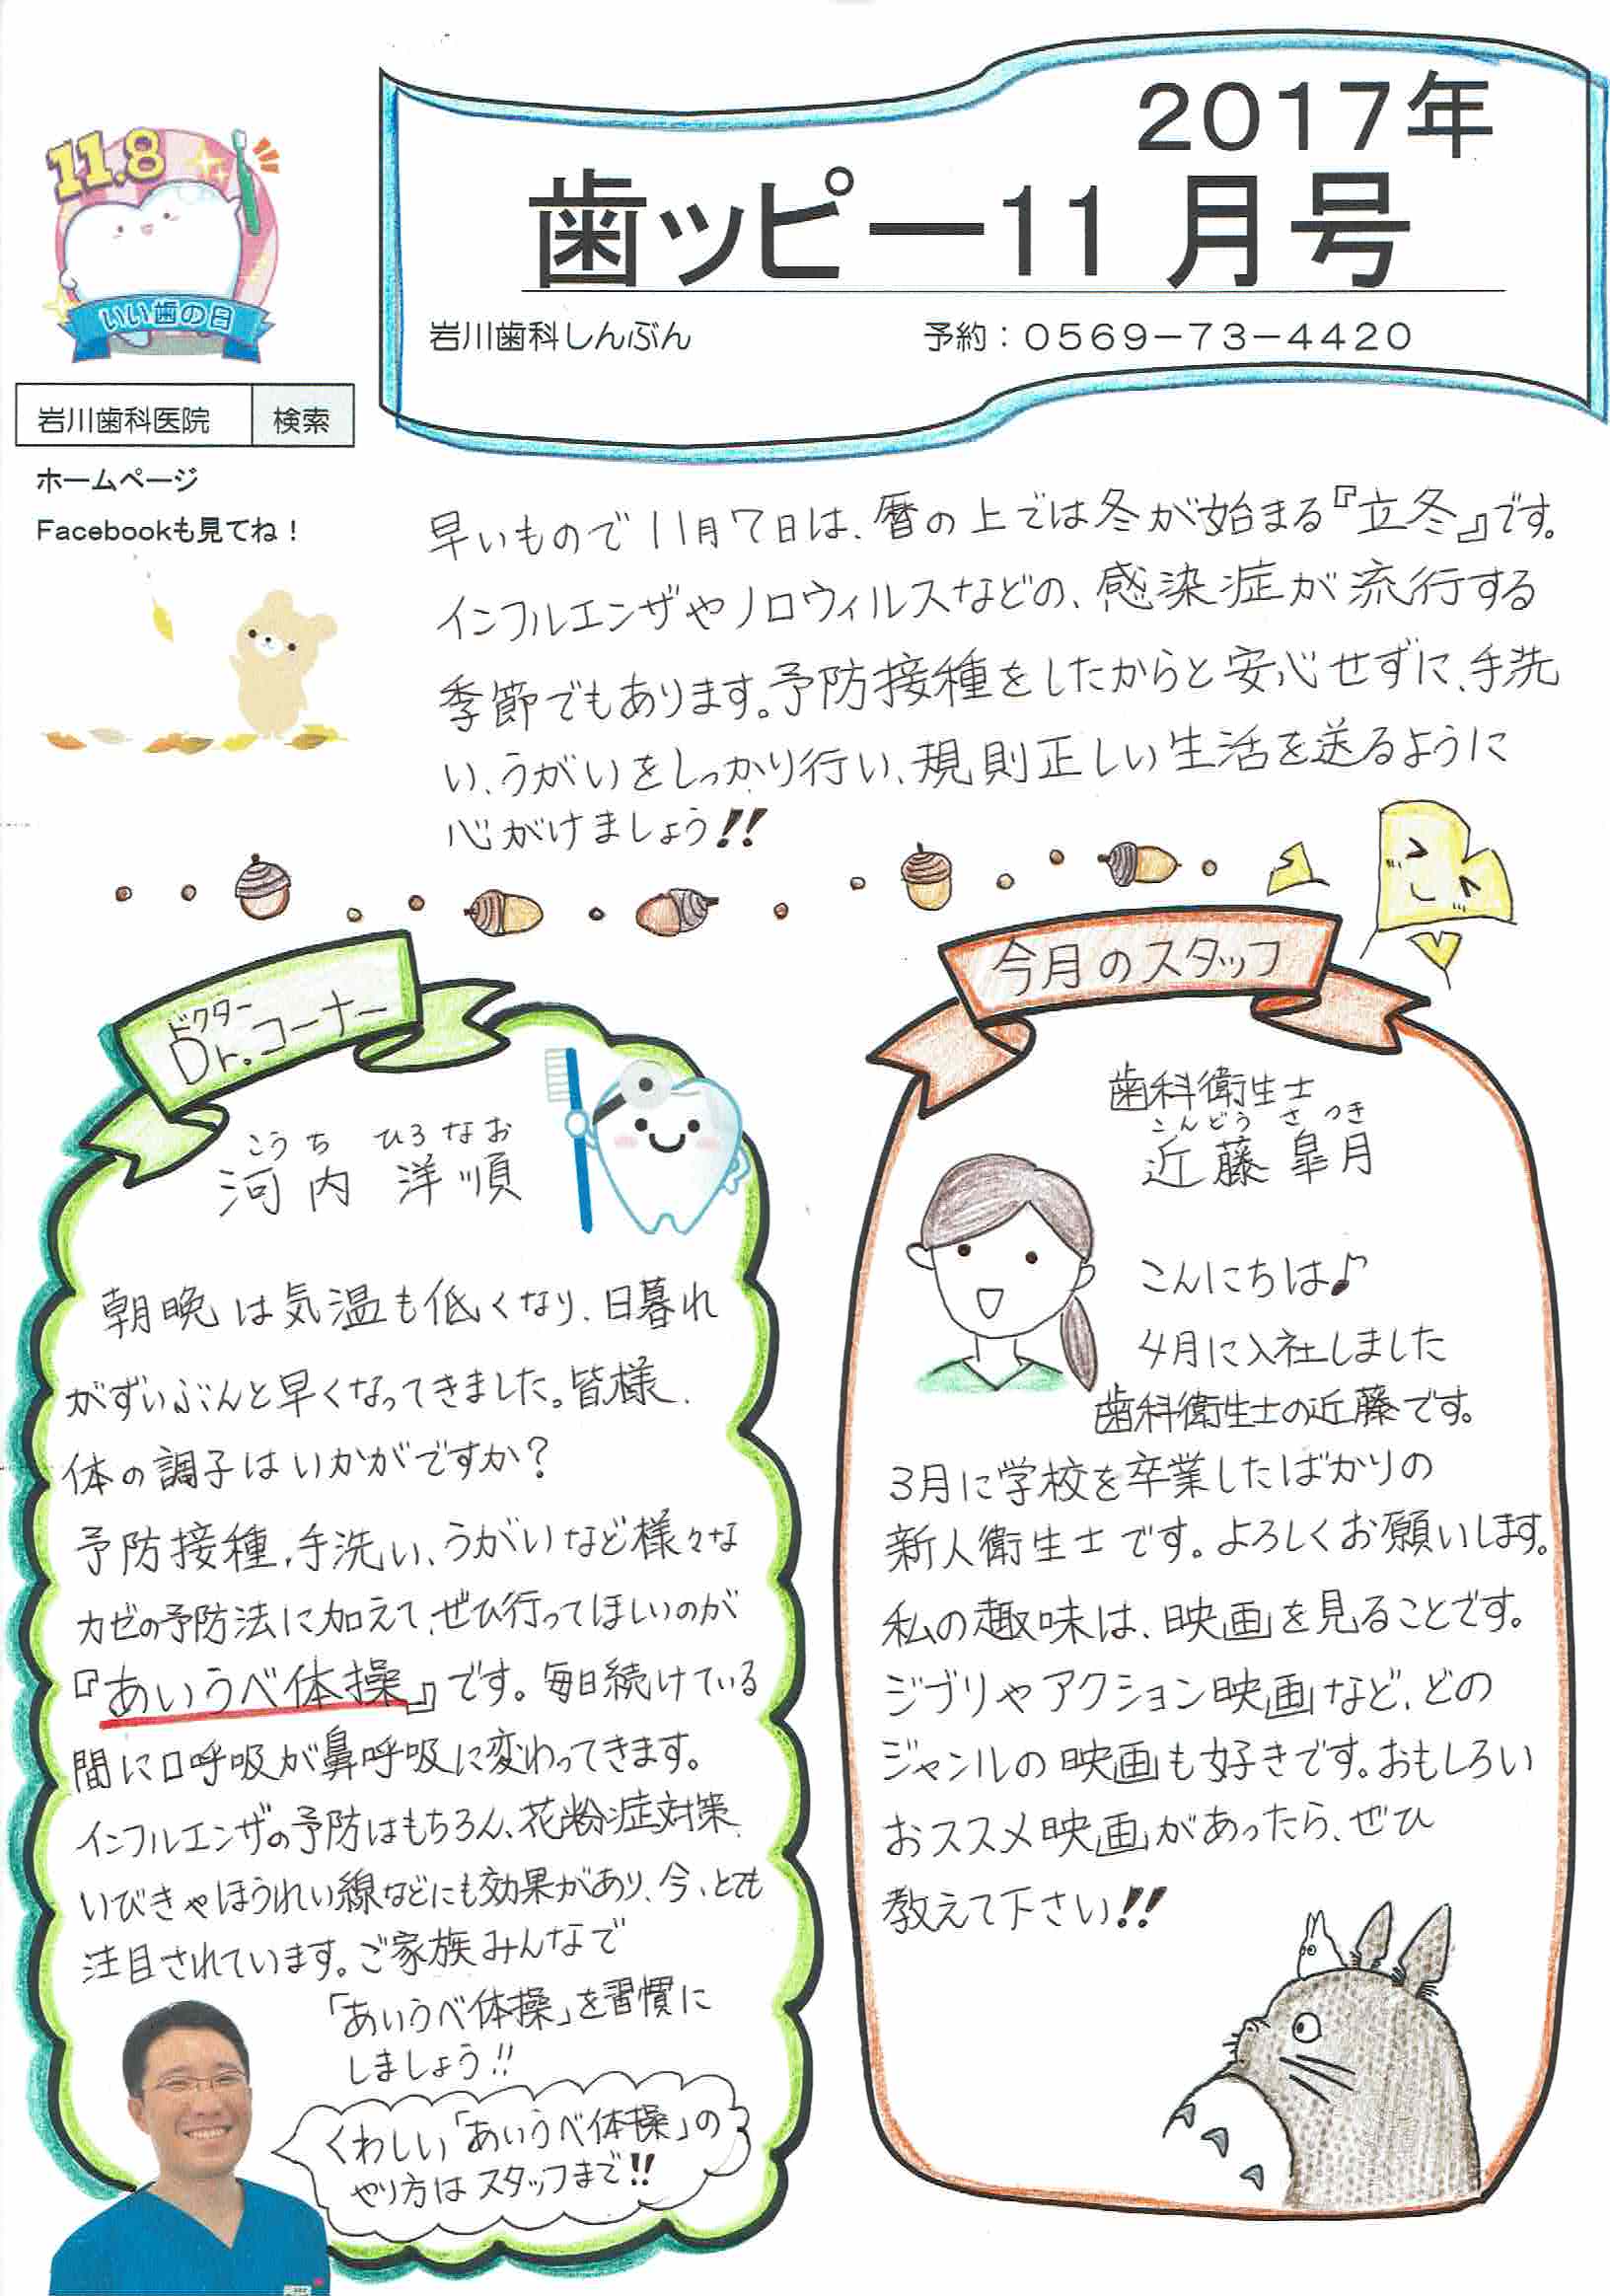 11.8
いい歯の日
2017年
歯ッピー11月号
岩川歯科しんぶん
予約：0569－73－4420
岩川歯科医院 検索
ホームページ
Facebookも見てね！
早いもので11月7日は、暦の上では冬が始まる『立冬』です。
インフルエンザやノロウィルスなどの、感染症が流行する
季節でもあります。予防接種をしたからと安心せずに、手洗
い、うがいをしっかり行い、規則正しい生活を送るように
心がけましょう!!
ドクター
Dr.コーナー
こうち ひろなお
河内 洋順
朝晩は気温も低くなり、日暮れ
がずいぶんと早くなってきました。皆様、
体の調子はいかがですか？
予防接種、手洗い、うがいなど様々な
カゼの予防法に加えて、ぜひ行ってほしいのが
『あいうべ体操』です。毎日続けている
間に口呼吸が鼻呼吸に変わってきます。
インフルエンザの予防はもちろん、花粉症対策、
いびきやほうれい線などにも効果があり、今、とても
注目されています。ご家族みんなで
「あいうべ体操」を習慣に
しましょう!!
くわしい「あいうべ体操」の
やり方はスタッフまで!!
今月のスタッフ
歯科衛生士
こんどう さつき
近藤 皐月
こんにちは♪
4月に入社しました
歯科衛生士の近藤です。
3月に学校を卒業したばかりの
新人衛生士です。よろしくお願いします。
私の趣味は、映画を見ることです。
ジブリやアクション映画など、どの
ジャンルの映画も好きです。おもしろい
おススメ映画があったら、ぜひ
教えて下さい!!